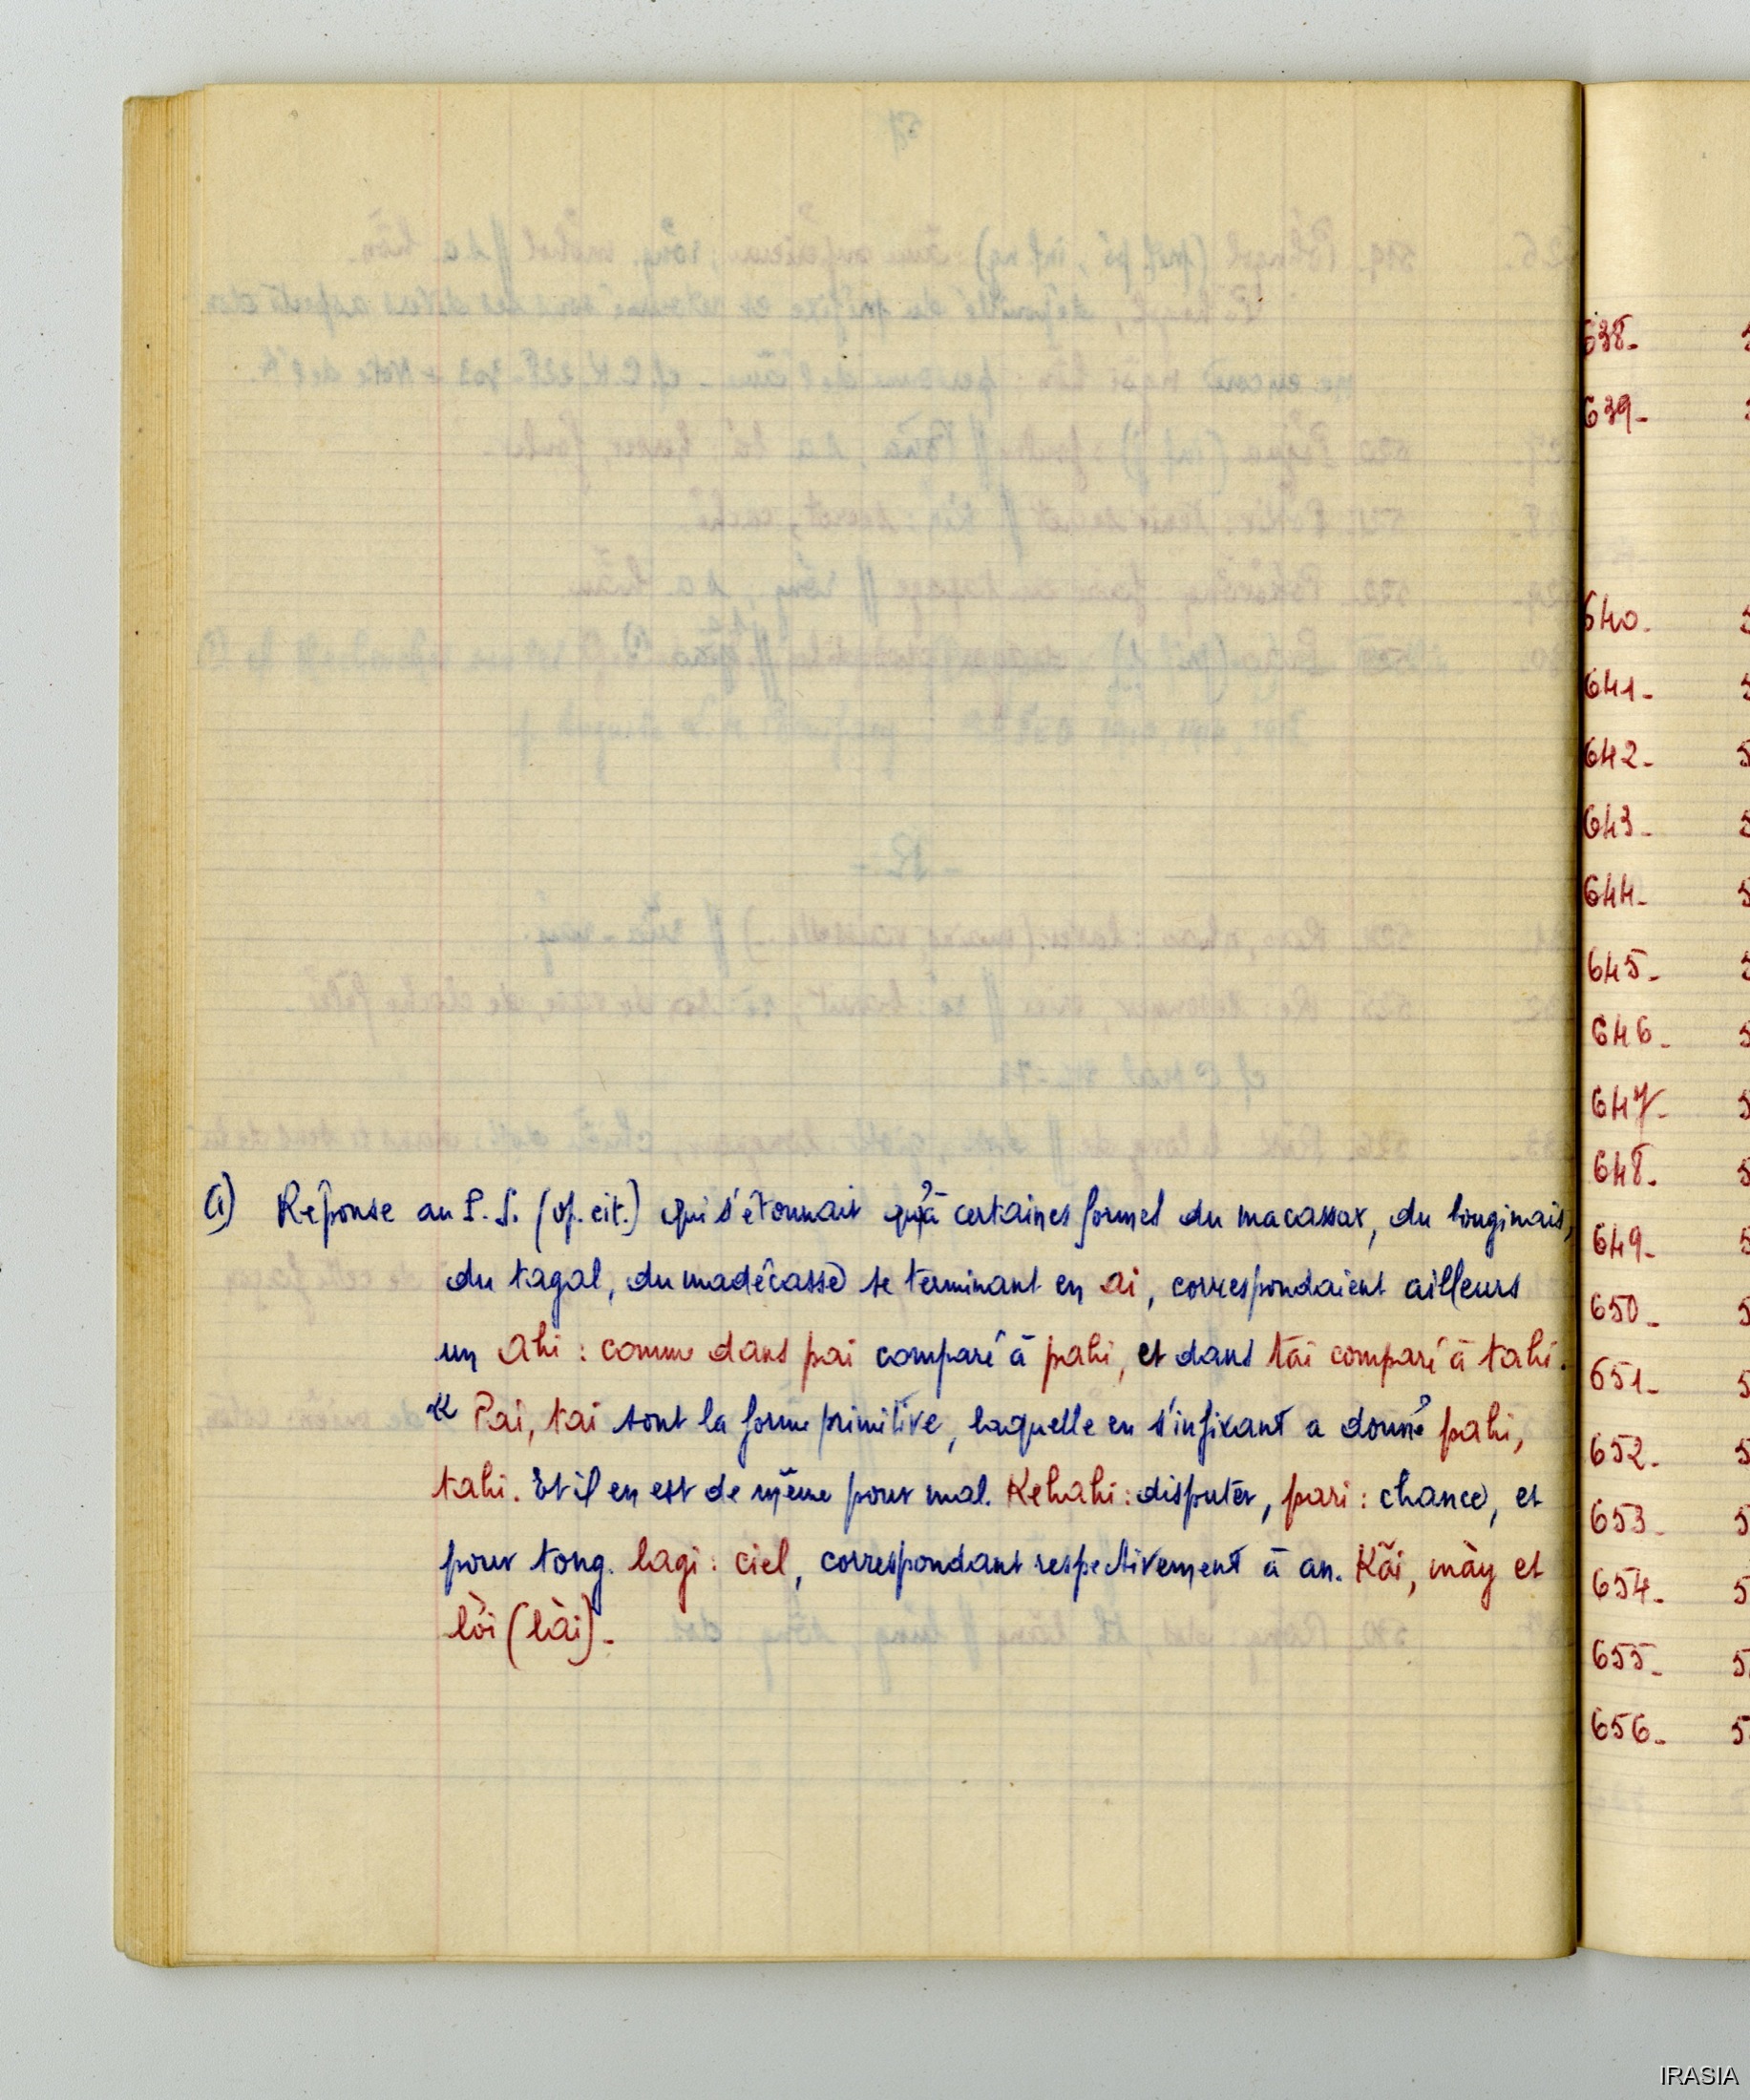 (1) Réponse au P. S. (op. cit.) qui s'étonnait qu'à certaines formes du macassar, du bouginais,
du tagal, du madécasse se terminant en ai, correspondaient ailleurs
un ahi : comme dans pai comparé à pahi, et dans tai comparé à tahi.
Pai, tai sont la forme primitive, laquelle en s'infixant a donné pahi,
tahi. Et il en est de même pour mal. Kelahi : disputer, pari : chance, et
pour tong. lagi : ciel, correspondant respectivement à an. Kãi, mày et
lòi (lài).
638-
639-
640-
641-
642-
643-
644-
645-
646-
647-
648-
649-
650-
651-
652-
653-
654-
655-
656-
IRASIA